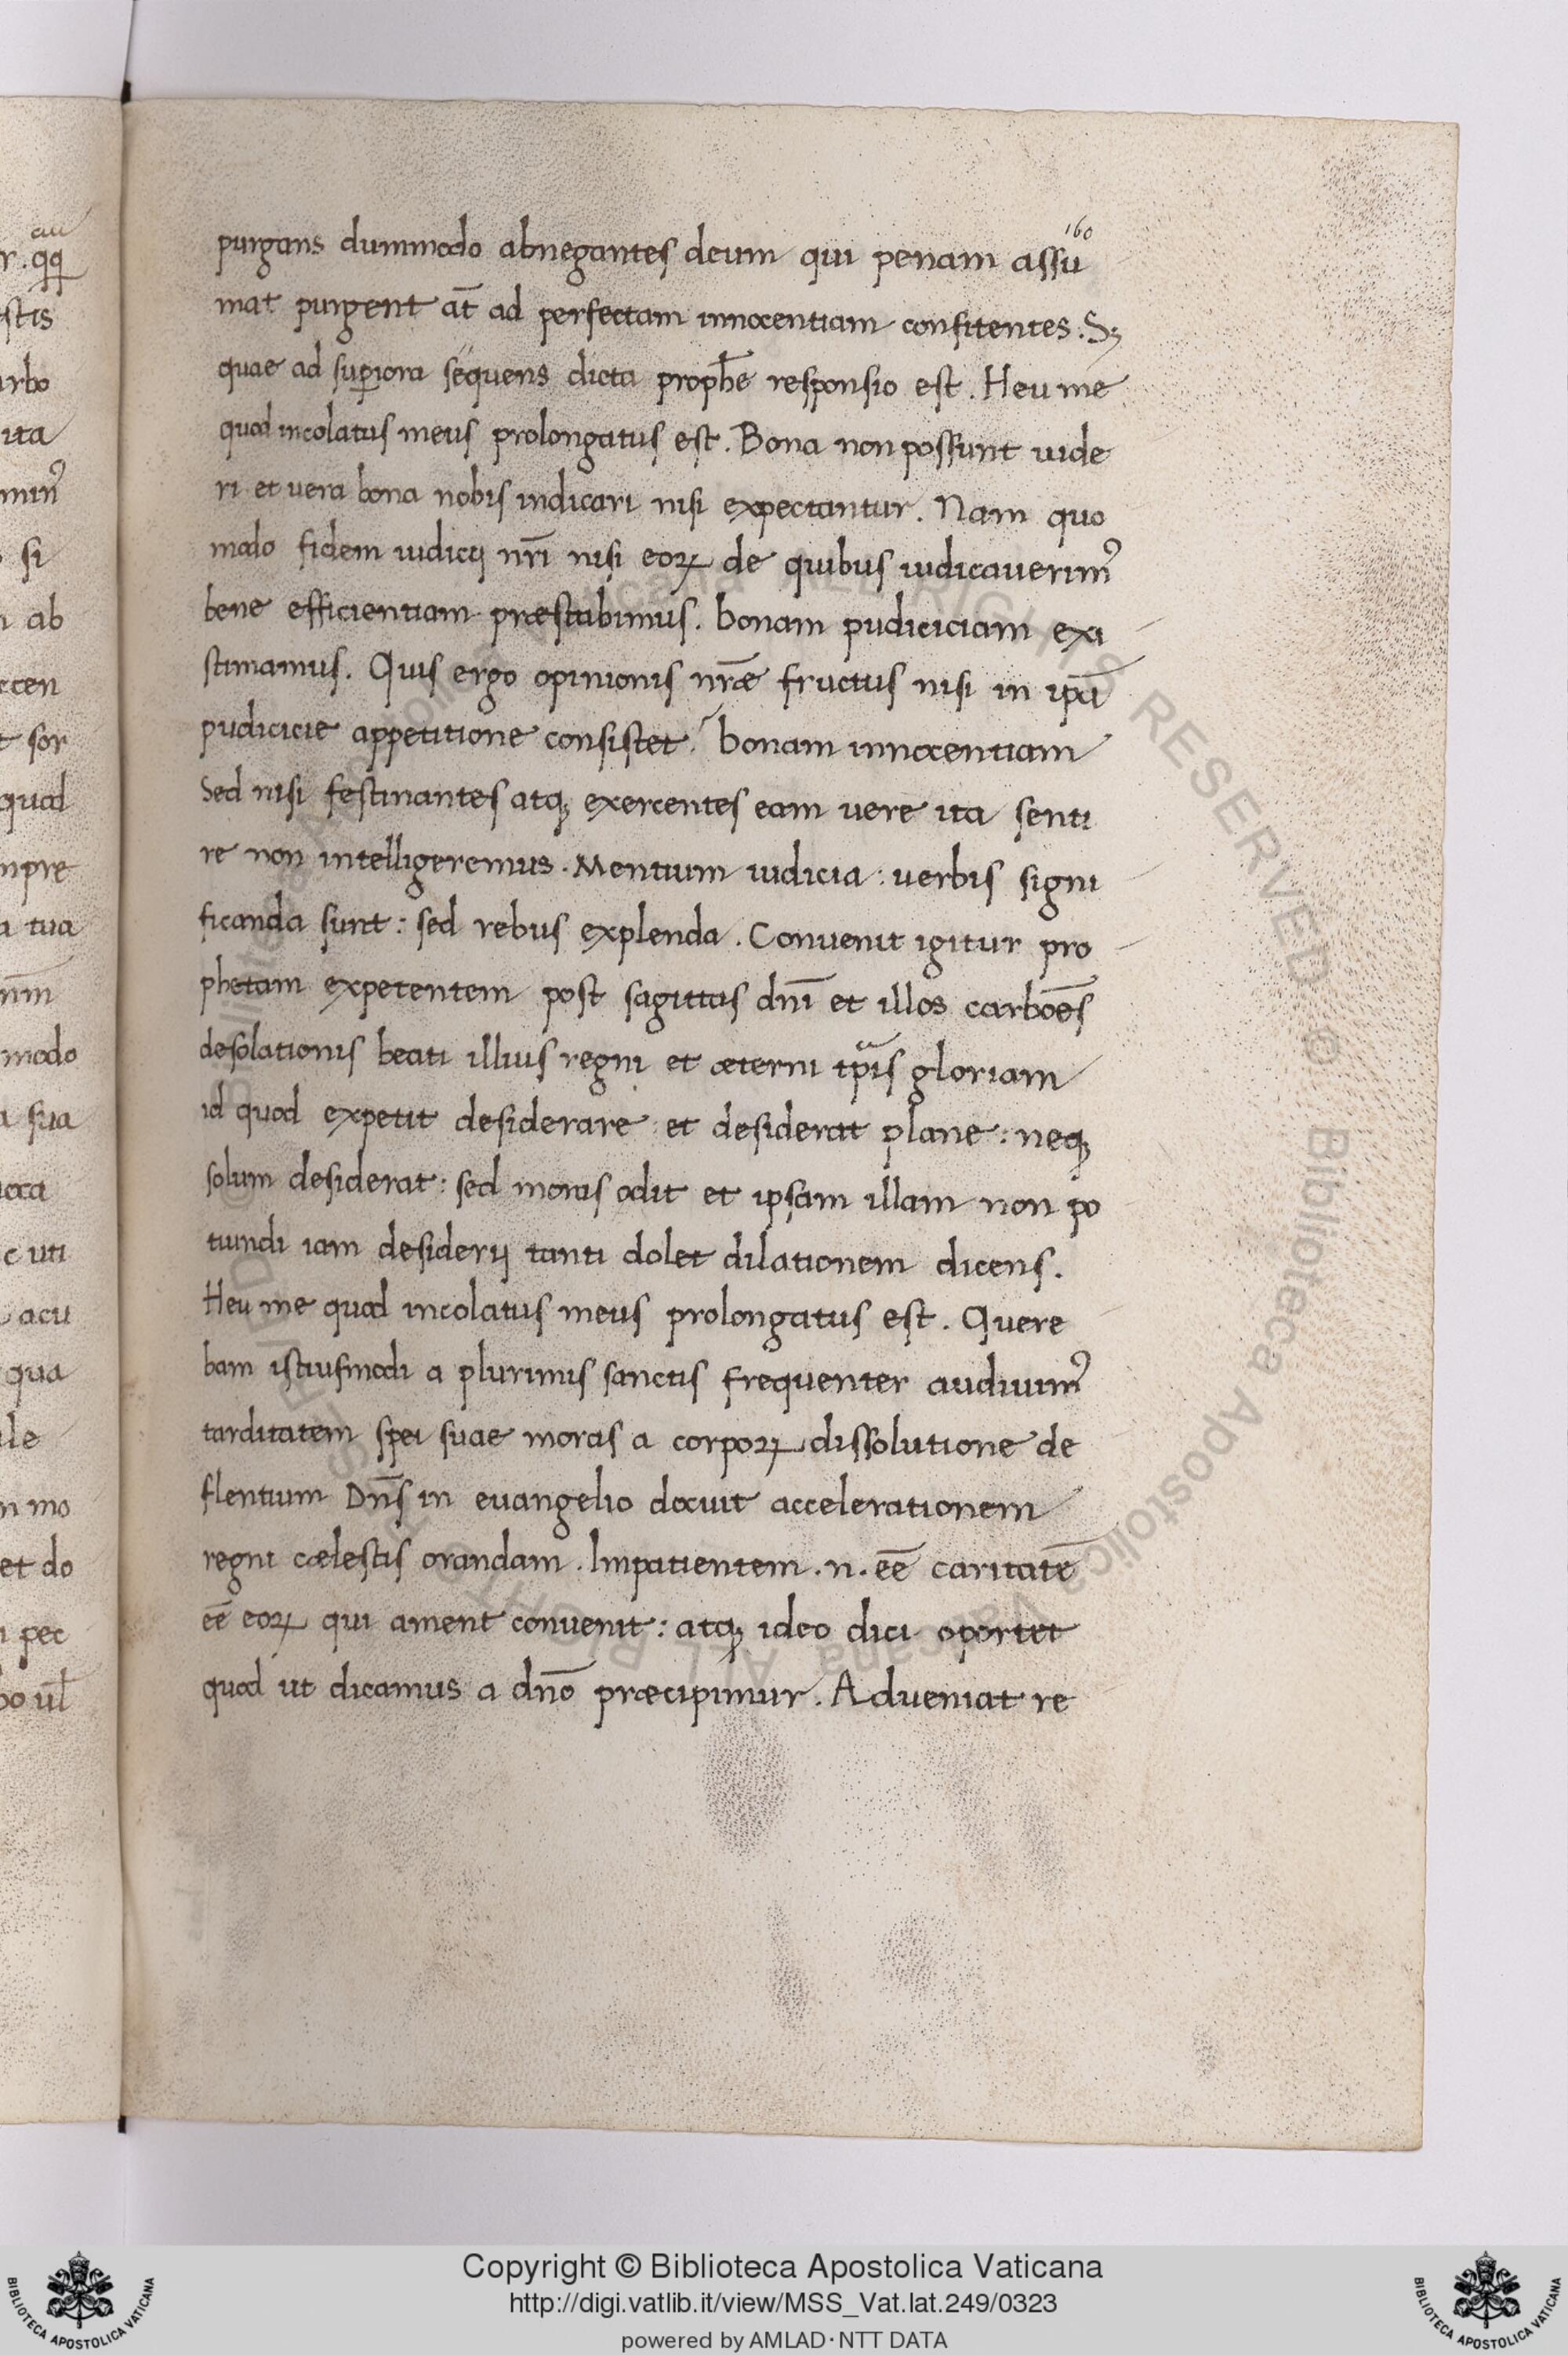 160
purgans dummodo abnegantes deum qui penam assu
mat purgent at̄ ad perfectam innocentiam confitentes. Sꝫ
quae ad suꝑiora sequens dicta proph̄e responsio est. Heu me
quod incolatus meus prolongatus est. Bona non possunt uide
ri et vera bona nobis indicari nisi expectantur. Nam quo
modo fidem iudicij nr̄i nisi eoꝝ de quibus iudicauerimꝰ
bene efficientiam præstabimus. bonam pudiciciam exi
stimamus. Quis ergo opinionis nr̄æ fructus nisi in ip̄a
pudicicie appetitione consistet? bonam innocentiam
Sed nisi festinantes atqꝫ exercentes eam vere ita senti
re non intelligeremus. Mentium iudicia: uerbis signi
ficanda sunt: sed rebus explenda. Convenit igitur pro
phetam expetentem post sagittas dn̄i et illos carbōes
desolationis beati illius regni et æterni tp̄is gloriam
id quod expetit desiderare: et desiderat plane: neqꝫ
solum desiderat: sed moras odit et ipsam illam non po
tiundi iam desiderij tanti dolet dilationem dicens.
Heu me quod incolatus meus prolongatus est. Quere
bam istiusmodi a plurimis sanctis frequenter audiuimꝰ
tarditatem spei suae moras a corpoꝝ dissolutione de
flentium Dn̄s in euangelio docuit accelerationem
regni cælestis orandam. Impatientem .n. ēē caritatē
ēē eoꝝ qui ament convenit: atqꝫ ideo dici oportet
quod ut dicamus a dn̄o præcipimur. Adueniat re
au
r. qq
stis
arbo
ita
minꝰ
si
ab
ccen
t sor
quod
npre
a tua
modo
a sua
oca
c uti
acu
qua
ile
n mo
et do
i pec
Biblioteca Apostolica Vaticana ALL RIGHTS RESERVED ©
Copyright © Biblioteca Apostolica Vaticana
http://digi.vatlib.it/view/MSS_Vat.lat.249/0323
powered by AMLAD·NTT DATA
BIBLIOTECA APOSTOLICA VATICANA
BIBLIOTECA APOSTOLICA VATICANA